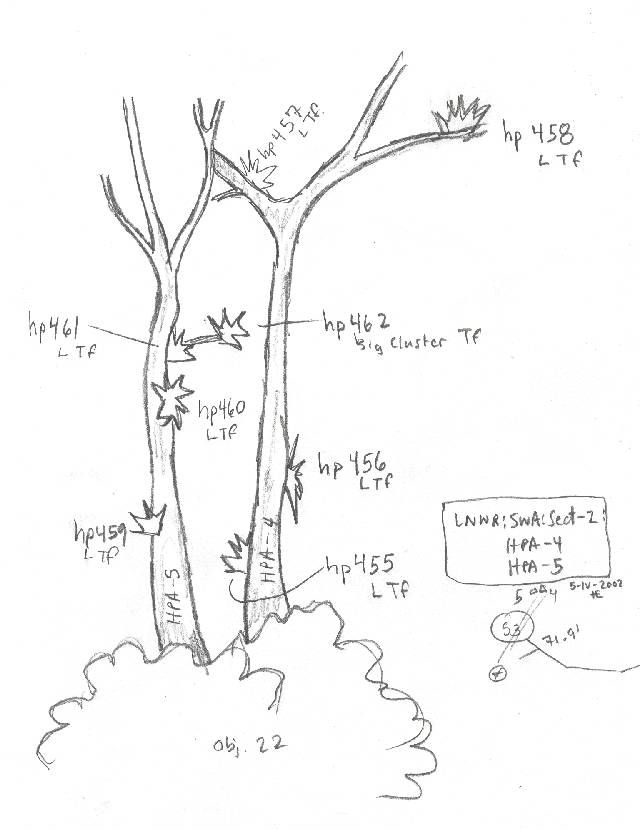 hp457
L Tf.
hp 458
L Tf
hp461
L Tf
hp462
Big Cluster Tf
hp460
L Tf
hp 456
L Tf
hp459
L Tf
hp455
L Tf
HPA-5
HPA-4
LNWR:SWA:Sect-2:
HPA-4
HPA-5
5 4
5-IV-2002
53
71.9'
obj. 22